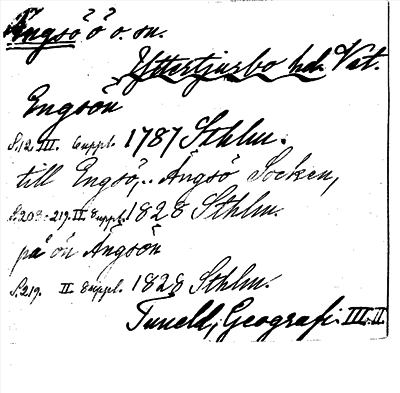 Ängsö ö o. sn.
Yttertjurbo hd. Vst.
Engsön
S. 12. III. 6 uppl. 1787 Sthlm.
till Engsö,.. Ängsö Socken,
S. 203.-219. II 8 uppl. 1828 Sthlm.
på ön Ängsön
S. 219. II 8 uppl. 1828 Sthlm.
Tuneld, Geografi. III. II